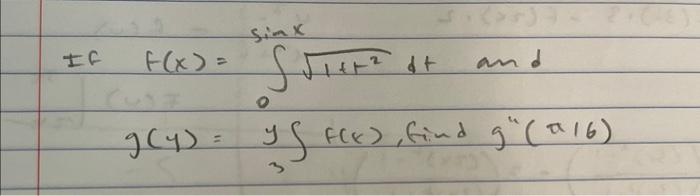 If f(x) = ∫₀^(sin x) √(1+t²) dt and
g(y) = ₃∫^y f(x), find g"(π/6)